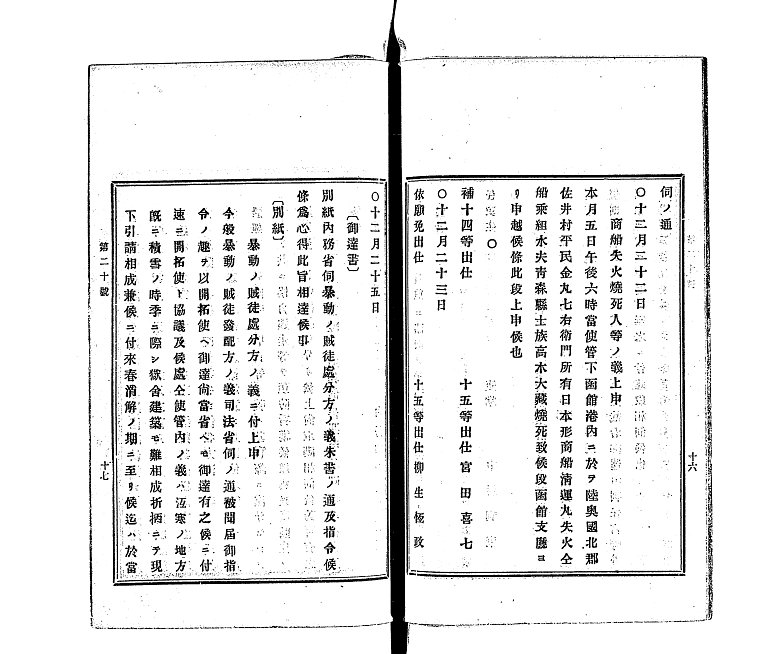 十六
伺ノ通
〇十二月二十二日
商船失火燒死人等ノ義上申
本月五日午後六時當使管下函館港內ニ於ヲ陸奧國北郡
佐井村平民金丸七右衞門所有日本形商船淸運丸失火仝
船乘組水夫靑森縣士族高木大藏燒死致候段函館支廳ヨ
リ申越候條此段上申候也
〇
補十四等出仕 十五等出仕宮田喜七
〇十二月二十三日
依願免出仕 十五等出仕柳生極政
〇十二月二十五日
〔御達書〕
別紙內務省伺暴動ノ賊徒處分方ノ義朱書ノ通及指令候
條爲心得此旨相達候事
〔別紙〕
暴動ノ賊徒處分方ノ義ニ付上申
今般暴動ノ賊徒發配方ノ義司法省伺ノ通被聞届御指
令ノ趣ヲ以開拓使ヘ御達尙當省ヘモ御達有之候ニ付
速ニ開拓使ト協議及候處仝使管內ノ義ハ沍寒ノ地方
旣ニ積雪ノ時季ニ際シ獄舍建築モ難相成折柄ニテ現
下引請相成兼候ニ付來春消解ノ期ニ至リ候迄ハ於當
第二十號
十七